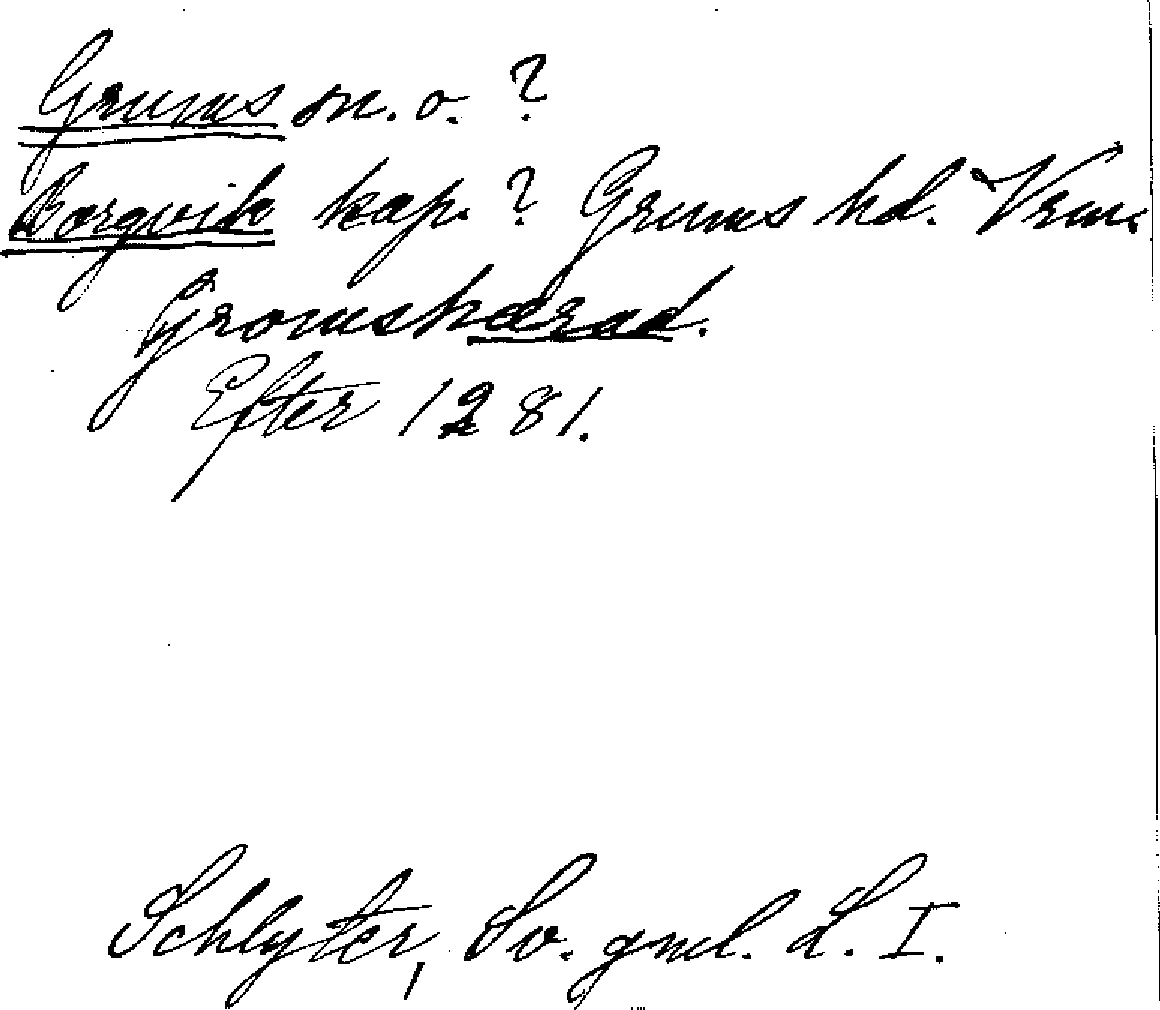 Grums sn. o. ?
Borgvik kap. ? Grums hd. Vrm.
Gromshærad.
Efter 1281.
Schlyter, Sv. gml. L. I.